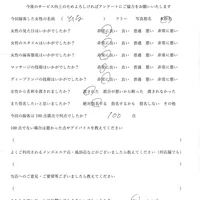 今後のサービス向上のためよろしければアンケートにご協力をお願いします
今回接客した女性の名前 ( ) フリー 写真指名 本指名
女性の見た目はいかがでしたか? 非常に良い 良い 普通 悪い 非常に悪い
女性のスタイルはいかがでしたか? 非常に良い 良い 普通 悪い 非常に悪い
女性の接客はいかがでしたか? 非常に良い 良い 普通 悪い 非常に悪い
マッサージの技術はいかがでしたか? 非常に良い 良い 普通 悪い 非常に悪い
ディープリンパの技術はいかがでしたか? 非常に良い 良い 普通 悪い 非常に悪い
女性から名刺を渡されましたか? 渡された 渡されなかった
またこの女性を指名したいと思いますか? 指名する 指名しない
今回の接客は100点満点で何点でしたか? ( 100 ) 点
100点でない場合は悪かった点やアドバイスを教えてください
( )
( )
よくご利用されるメンズエステ店・風俗店などがございましたら教えてください
( )
当店へのご意見・ご要望等ございましたら教えてください
( )